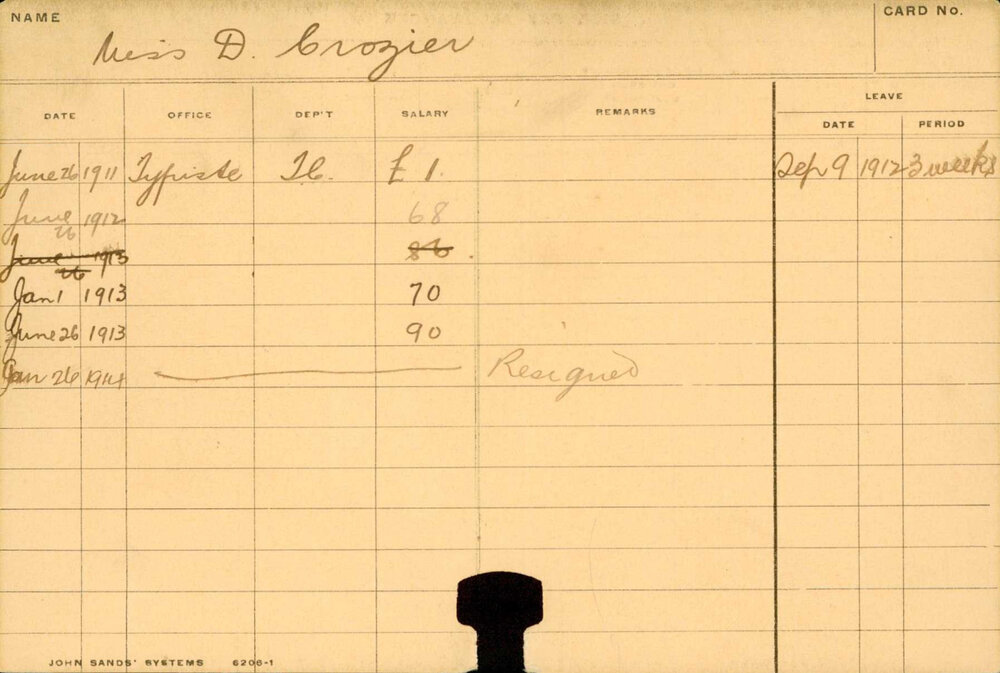 NAME
Miss D. Crozier
CARD No.
DATE OFFICE DEP'T SALARY REMARKS LEAVE
DATE PERIOD
June 26 1911 Typiste £ 1. Sep 9 1912 3 weeks
June 26 1912 68
June 26 1913
Jan 1 1913 70
June 26 1913 90
Jan 26 1914 Resigned
JOHN SANDS' SYSTEMS 6206-1